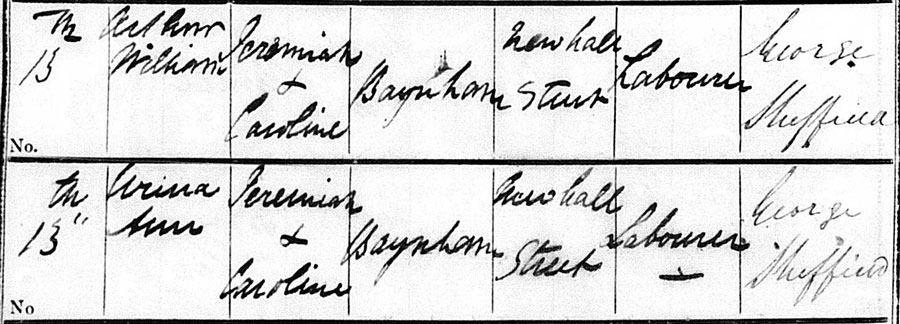 13th
Arthur
William
Jeremiah
+
Caroline
Baynham
Newhall
Street
Labourer
George
Sheffield
No.
13th
Ann
Jeremiah
+
Caroline
Baynham
Newhall
Street
Labourer
George
Sheffield
No